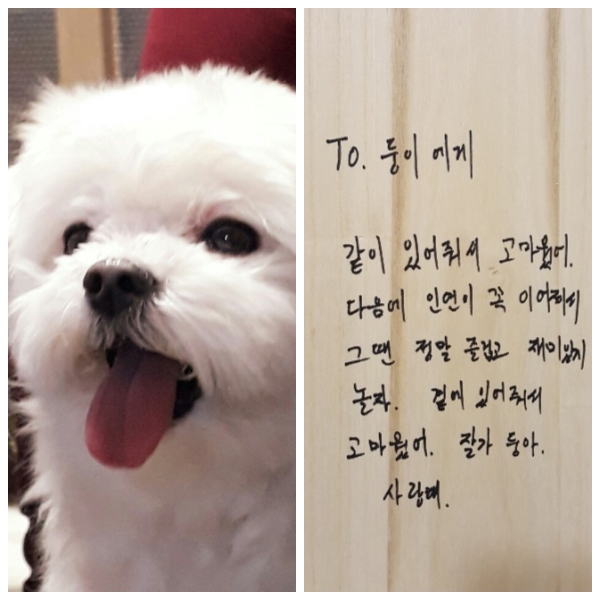 To. 둥이 에게
같이 있어줘서 고마웠어.
다음에 인연이 꼭 이어져서
그땐 정말 즐겁고 재미있게
놀자. 곁에 있어줘서
고마웠어. 잘가 둥아.
사랑해.